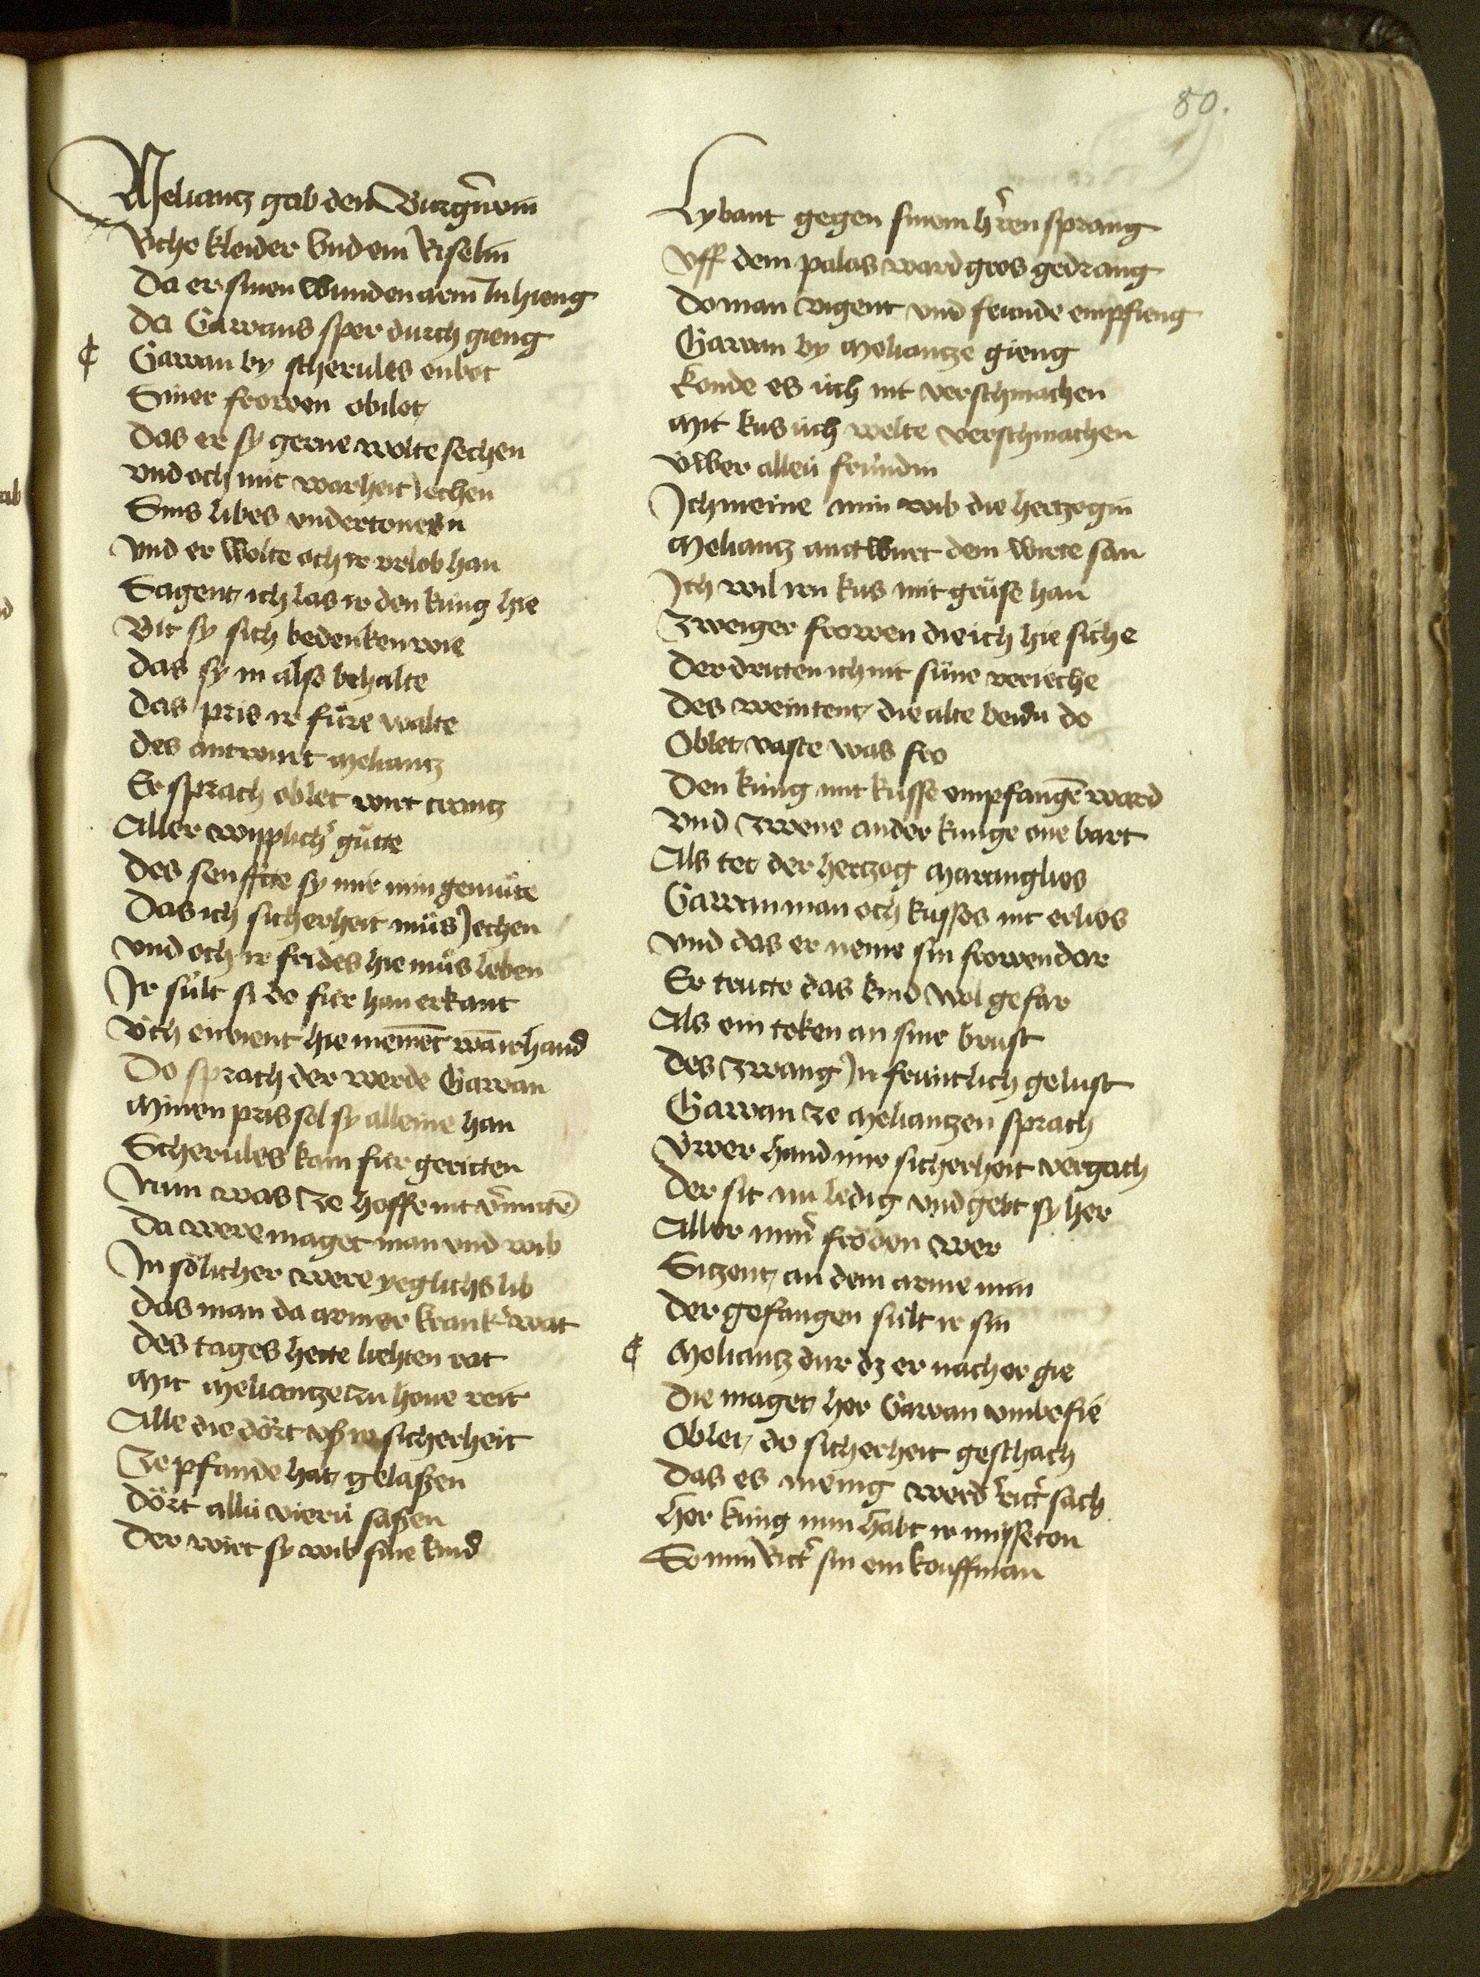 80.
Meliantz gab den Burgr̄vin
Riche kleider vnd ein Riselin
Da er sinen wunden arm In hieng
Da Gawans sper durch gieng
¢ Gawan by scherules enbot
Siner frowen obilot
Das er sy gerne wolte sechen
vnd och mit warheit Jechen
Sins libes vndertonesn
vnd er wolte och ir vrlob han
Sagent ich las ir den kúng hie
Bit sy sich bedenken wie
das sy in also behalte
das pris ir fúre walte
des antwurt meliantz
Er sprach oblet wirt crantz
Aller wiplich̄ gůtte
des senffte sy mir min gemůte
Das ich sicherheit můs Jechen
vnd och ir frides hie můs leben
Ir súlt si do fúr han erkant
úch envient hie niemēt wan ir hand
Do sprach der werde Gawan
Minen pris sol sy alleine han
Scherules kam fúr geritten
Nun was ze hoffe nit v̄mittē
Da were maget man vnd wib
In sölicher were yeglichs lib
das man da armer krank̄ wat
des tages hette liehten rat
Mit meliantze zu houe reit
Alle die dört vsß ir sicherheit
Ze pfande hat gelaßen
dört allú vierú saßen
Der wirt sy wib sine kind
Lybant gegen sinem h̄ren sprang
vff dem palas ward gros gedrang
do man vigent vnd frunde empfieng
Gawan by Meliantze gieng
konde es úch nit verschmachen
Mit kus úch welte verschmachen
úwer allen frúndin
Ich meine min wib die hertzogin
Meliantz antwurt dem wirte san
Ich wil irn kus mit grúse han
Zweiger frowen die ich hie siche
der dritten ich nit súne veriche
des weintent die alte beidú do
Oblet vaste was fro
den kúng mit kusse empfangē ward
vnd zwene ander kúnge one bart
Als tet der hertzog Maranglios
Gawan man och kusses nit erlios
vnd das er neme sin frowen dar
Er tructe das kind wol gefar
Als ein token an sine brust
des zwang In fruntlich gelust
Gawan ze Meliantzen sprach
úwer hand mir sicherheit vergach
der sit nu ledig vnd gebt sy her
Aller min̄ fröden wer
Sitzent an dem arme min
der gefangen súlt ir sin
¢ Meliantz dur dz er nach er gie
die maget her Gawan vmbefie
Oblet do sicherheit geschach
das es menig werd rit̄ sach
her kúng nun habt ir misseton
So min Rit̄ sin ein kouffman